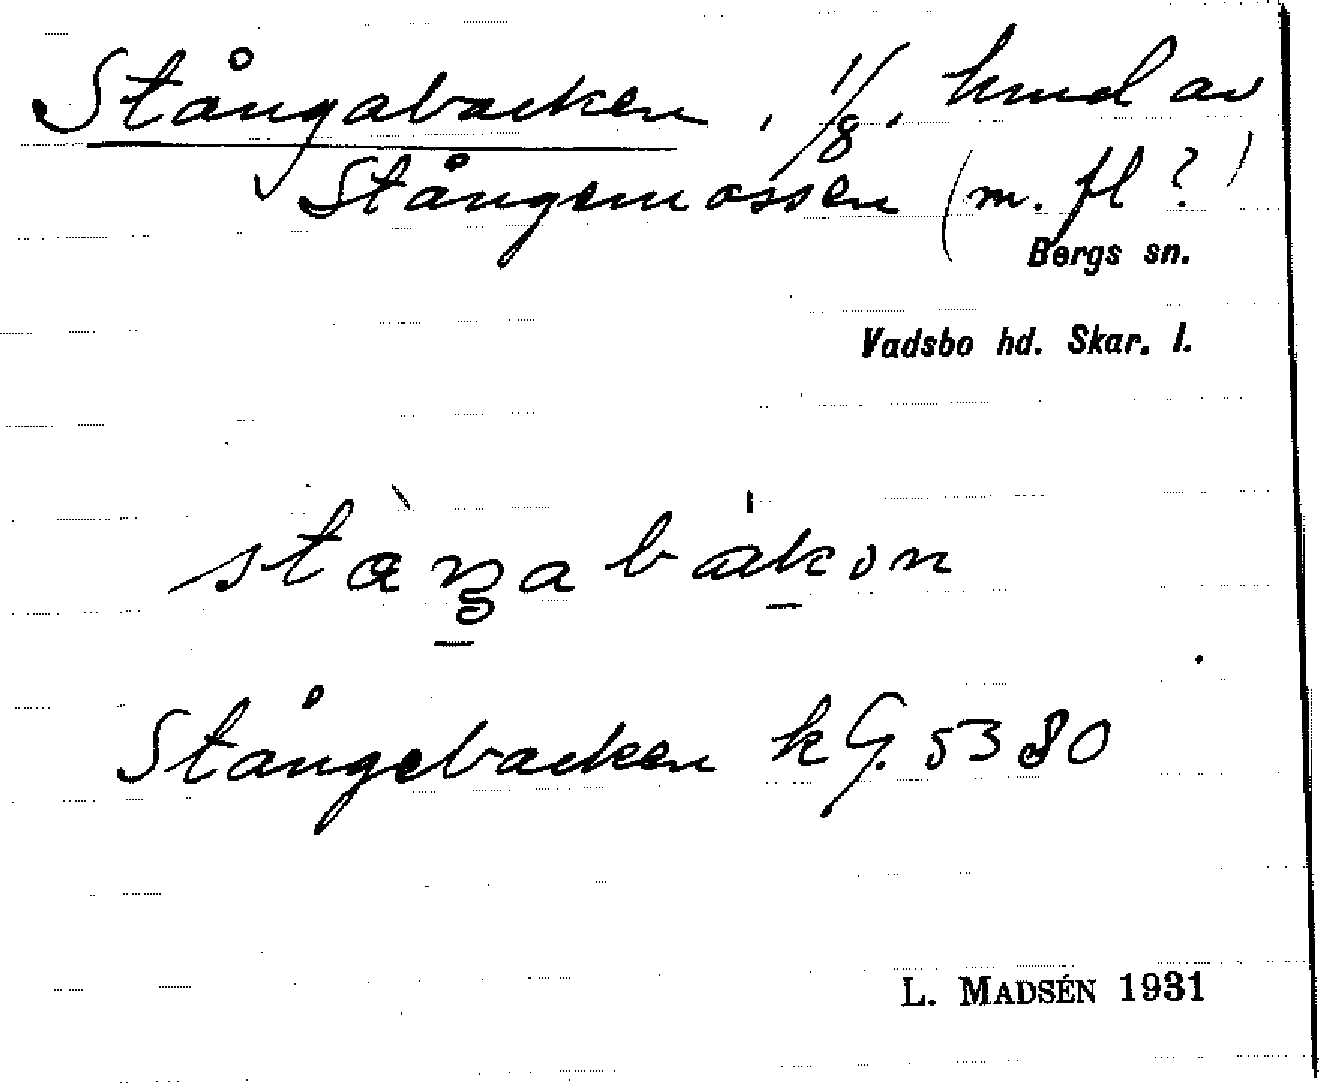 Stångabacken, 1/8, hmd av
Stångemossen (m. fl ?)
Bergs sn.
Vadsbo hd. Skar. l.
Stångebacken kG. 5380
L. MADSÉN 1931